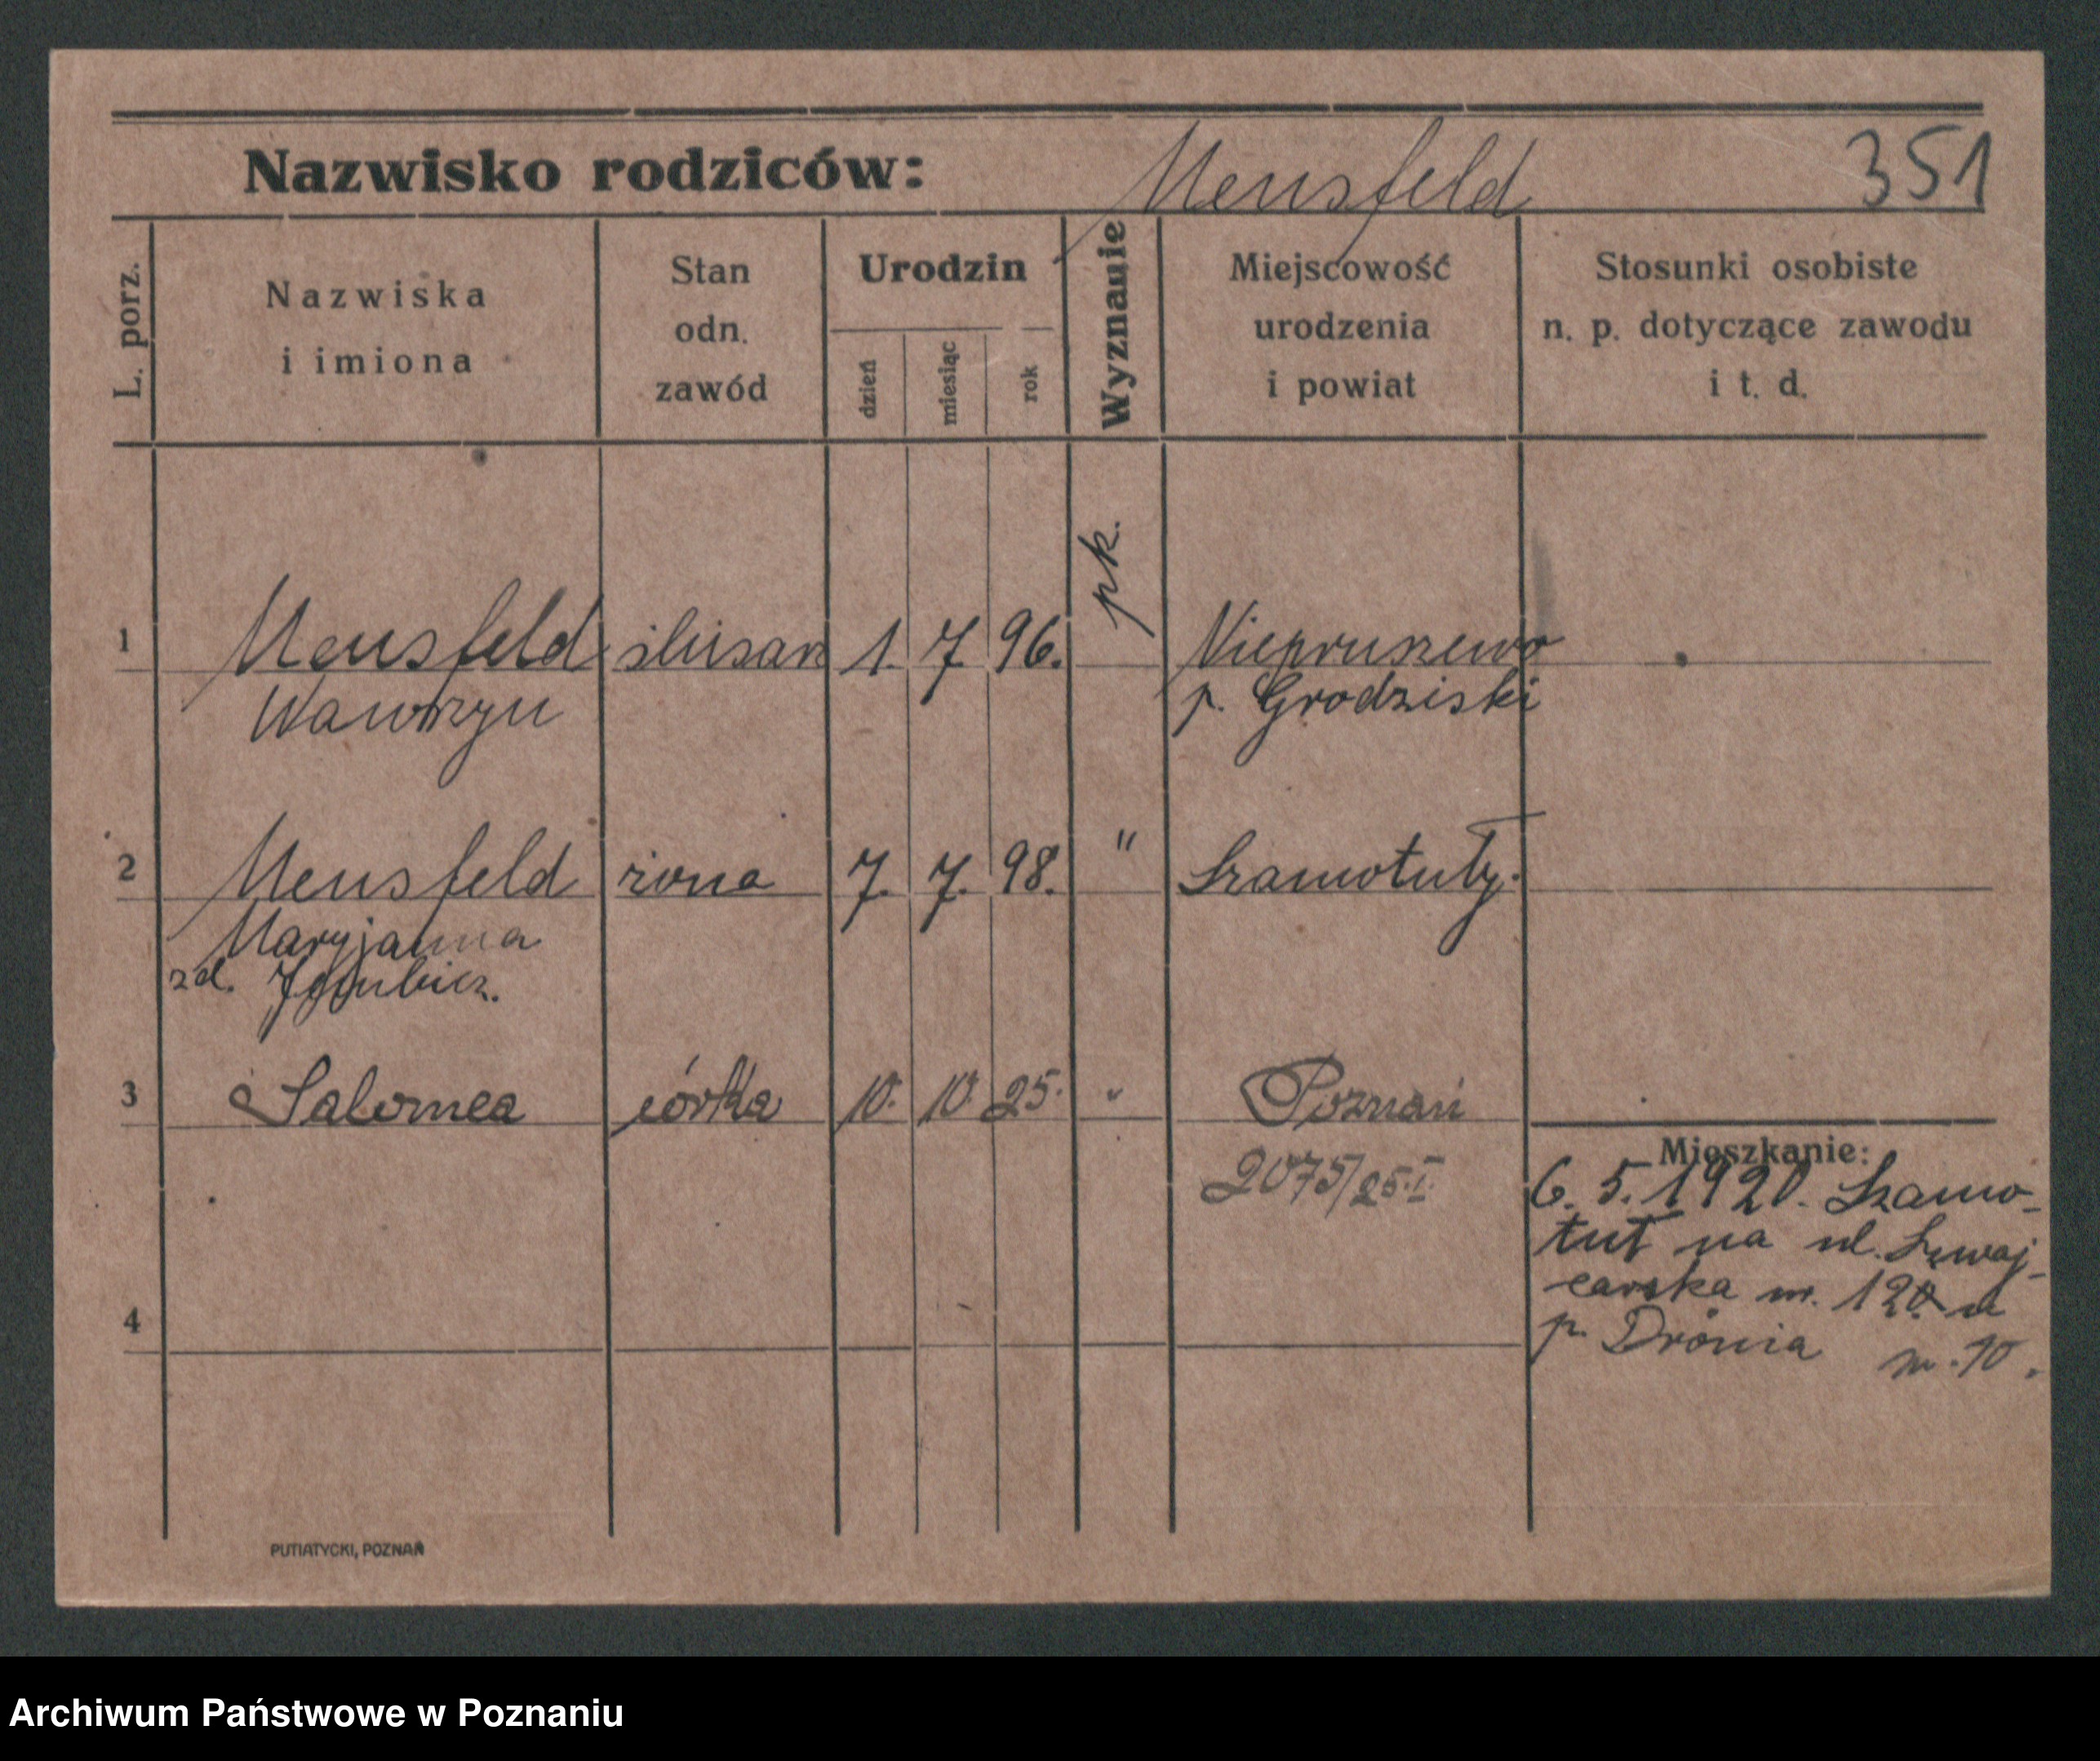 Nazwisko rodziców: Mensfeld 351
L. porz.
Nazwiska
i imiona
Stan
odn.
zawód
Urodzin
dzień miesiąc rok
Wyznanie
Miejscowość
urodzenia
i powiat
Stosunki osobiste
n. p. dotyczące zawodu
i t. d.
1 Mensfeld ślusarz 1. 7. 96. pk. Niepruszewo
Wawrzyn p. Grodziski
2 Mensfeld żona 7. 7. 98. " Szamotuły.
Maryjanna
zd.
3 Salomea córka 10. 10. 25. " Poznań
2075/25.I.
Mieszkanie:
6. 5. 1920. Szamo-
tuł na ul. Szwaj-
carska nr. 12
p. Drónia m. 10.
4
PUTIATYCKI, POZNAŃ
Archiwum Państwowe w Poznaniu